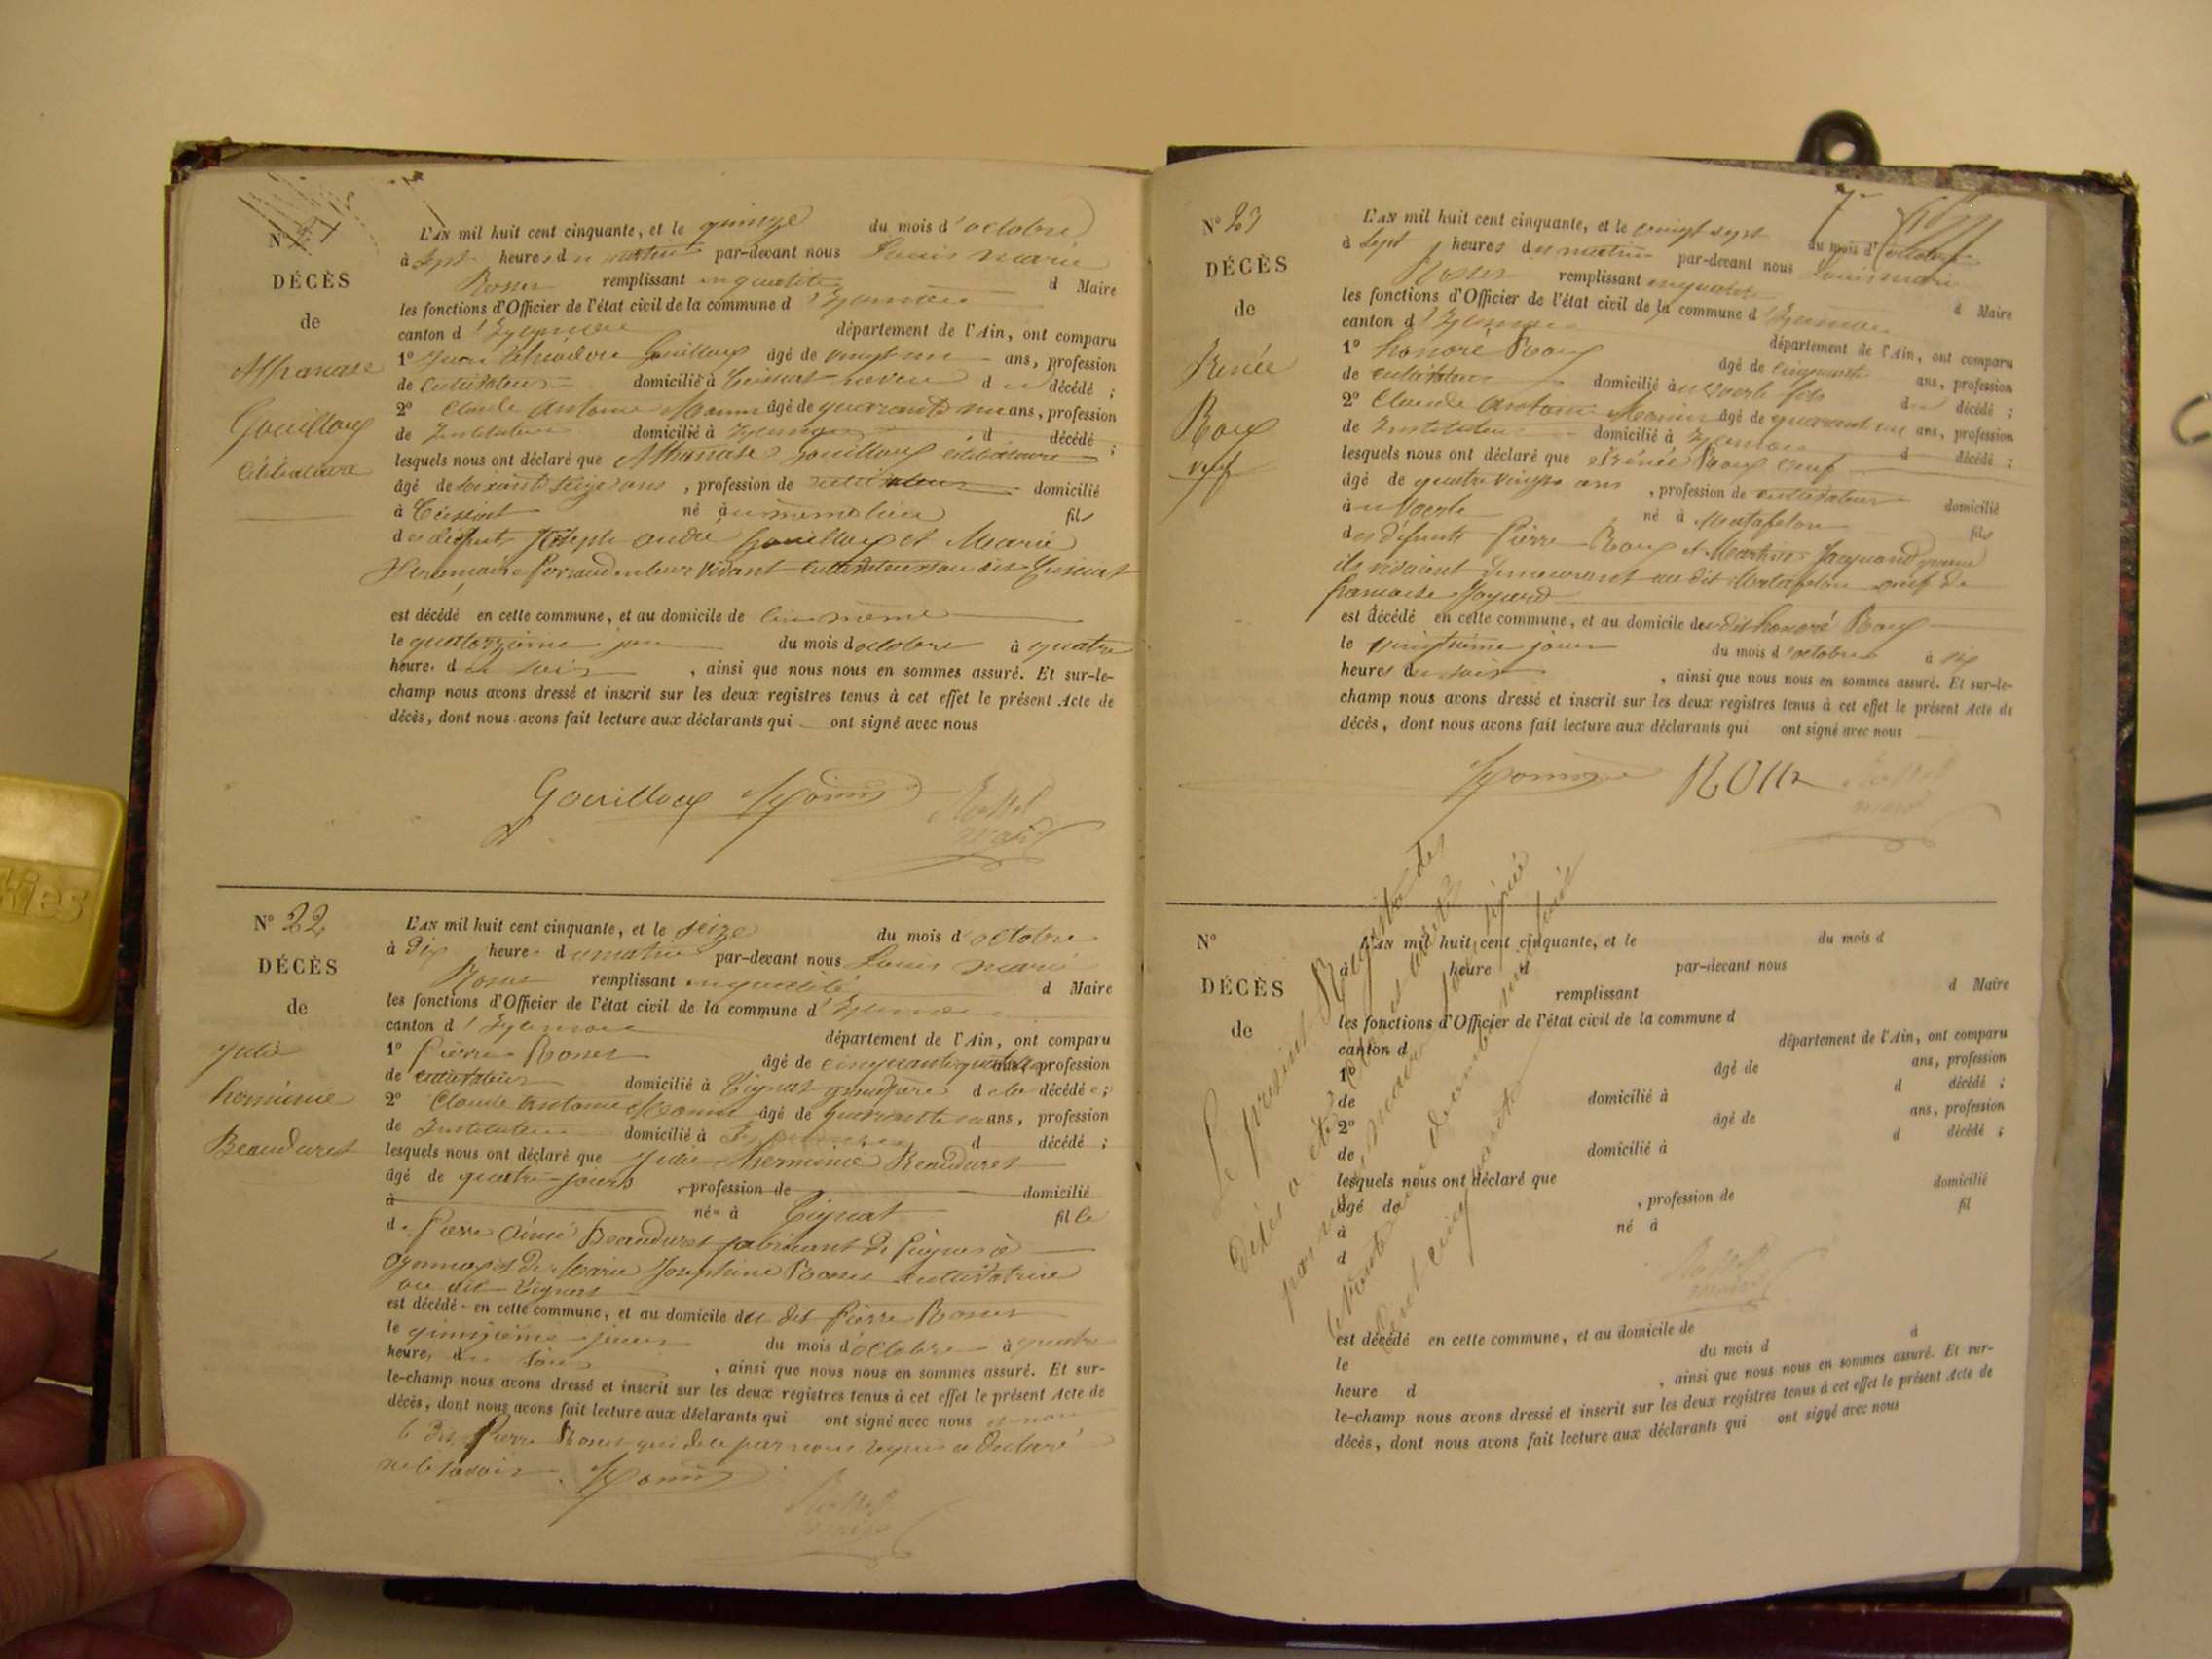 N°
DÉCÈS
de
Athanase
Gouilloux
Célibataire
L'AN mil huit cent cinquante, et le quinze du mois d'octobre
à sept heures du matin par-devant nous Louis Marie
remplissant en qualité d Maire
les fonctions d'Officier de l'état civil de la commune d'
canton d' département de l'Ain, ont comparu
1° Gouilloux âgé de vingt ans, profession
de cultivateur domicilié à neveu du décédé ;
2° Claude Antoine âgé de quarante un ans, profession
de Instituteur domicilié à d décédé ;
lesquels nous ont déclaré que Athanase Gouilloux célibataire
âgé de soixante seize ans , profession de cultivateur domicilié
à né au même lieu fils
des défunts Joseph André Gouilloux et Marie
vivant
est décédé en cette commune, et au domicile de lui même
le quatorzième jour du mois d'octobre à quatre
heures du soir , ainsi que nous nous en sommes assuré. Et sur-le-
champ nous avons dressé et inscrit sur les deux registres tenus à cet effet le présent Acte de
décès, dont nous avons fait lecture aux déclarants qui ont signé avec nous
Gouilloux
N° 22
DÉCÈS
de
Julie
herminie
Beauduret
L'AN mil huit cent cinquante, et le seize du mois d'octobre
à dix heures du matin par-devant nous Louis Marie
remplissant en qualité d Maire
les fonctions d'Officier de l'état civil de la commune d'
canton d' département de l'Ain, ont comparu
1° Pierre âgé de cinquante quatre ans, profession
de cultivateur domicilié à grand père de la décédée ;
2° Claude Antoine âgé de quarante un ans, profession
de Instituteur domicilié à d décédé ;
lesquels nous ont déclaré que Julie herminie Beauduret
âgé de quatre jours , profession de domicilié
à née à fille
de Pierre Aimé Beauduret fabricant de Peignes à
et de Marie Joséphine cultivatrice
au dit
est décédé en cette commune, et au domicile du dit Pierre
le quinzième jour du mois d'octobre à quatre
heures du soir , ainsi que nous nous en sommes assuré. Et sur-
le-champ nous avons dressé et inscrit sur les deux registres tenus à cet effet le présent Acte de
décès, dont nous avons fait lecture aux déclarants qui ont signé avec nous et non
le dit Pierre qui de ce par nous requis a déclaré
ne le savoir.
7
N° 23
DÉCÈS
de
Renée
Roux
veuf
L'AN mil huit cent cinquante, et le vingt sept du mois d'octobre
à sept heures du matin par-devant nous Louis marie
remplissant en qualité d Maire
les fonctions d'Officier de l'état civil de la commune d'
canton d' département de l'Ain, ont comparu
1° honoré Roux âgé de cinquante ans, profession
de cultivateur domicilié à fils du décédé ;
2° Claude Antoine âgé de quarante un ans, profession
de Instituteur domicilié à d décédé ;
lesquels nous ont déclaré que Roux veuf
âgé de quatre vingts ans , profession de cultivateur domicilié
à né à Matafelon fils
des défunts Pierre Roux et quand
ils vivaient demeurant au dit Matafelon veuf de
françoise
est décédé en cette commune, et au domicile du dit honoré Roux
le jour du mois d'octobre à six
heures du soir , ainsi que nous nous en sommes assuré. Et sur-le-
champ nous avons dressé et inscrit sur les deux registres tenus à cet effet le présent Acte de
décès, dont nous avons fait lecture aux déclarants qui ont signé avec nous
N°
DÉCÈS
de
L'AN mil huit cent cinquante, et le du mois d
à heure d par-devant nous
remplissant d Maire
les fonctions d'Officier de l'état civil de la commune d
canton d département de l'Ain, ont comparu
1° âgé de ans, profession
de domicilié à d décédé ;
2° âgé de ans, profession
de domicilié à d décédé ;
lesquels nous ont déclaré que
âgé de , profession de domicilié
à né à fil
d
est décédé en cette commune, et au domicile de
le du mois d à
heure d , ainsi que nous nous en sommes assuré. Et sur-
le-champ nous avons dressé et inscrit sur les deux registres tenus à cet effet le présent Acte de
décès, dont nous avons fait lecture aux déclarants qui ont signé avec nous
Le présent Registre des
Décès a été clos et arrêté
par nous maire soussigné
le trente un décembre mil huit
cent cinquante
kies